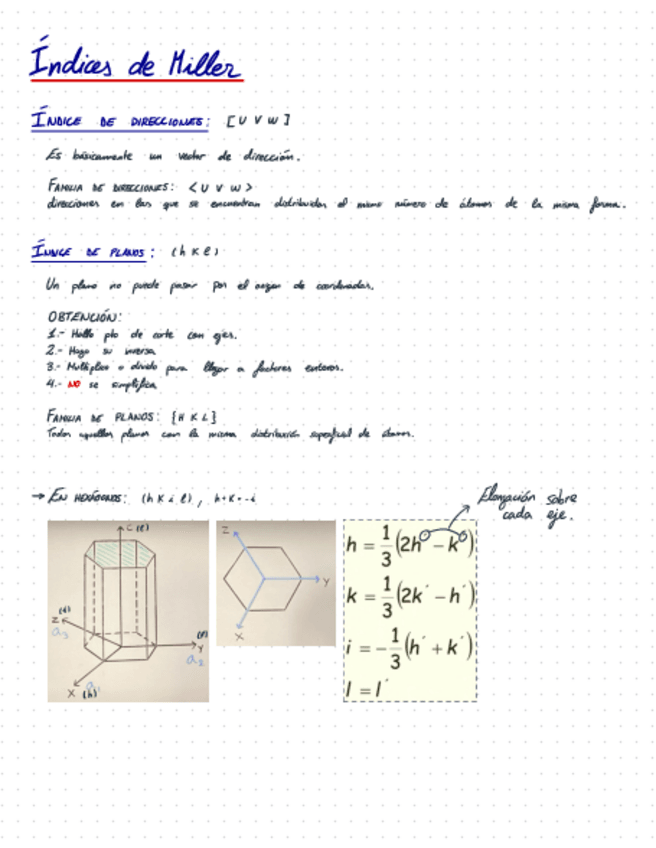 Índices de Miller
ÍNDICE DE DIRECCIONES: [U V W]
Es básicamente un vector de dirección.
FAMILIA DE DIRECCIONES: <U V W>
direcciones en las que se encuentran distribuidos el mismo número de átomos de la misma forma.
ÍNDICE DE PLANOS: (h K l)
Un plano no puede pasar por el origen de coordenadas.
OBTENCIÓN:
1.- Hallo pto de corte con ejes.
2.- Hago su inversa
3.- Multiplico o divido para llegar a factores enteros.
4.- NO se simplifica
FAMILIA DE PLANOS: {H K L}
Todos aquellos planos con la misma distribución superficial de átomos.
→ EN HEXÁGONOS: (h K i l), h+K=-i
Elongación sobre
cada eje.
C (l)
Z (i)
a₃
Y
a₂
X (h)
Z
Y
X
h = 1/3 (2h´ − k´)
k = 1/3 (2k´ − h´)
i = − 1/3 (h´ + k´)
l = l´